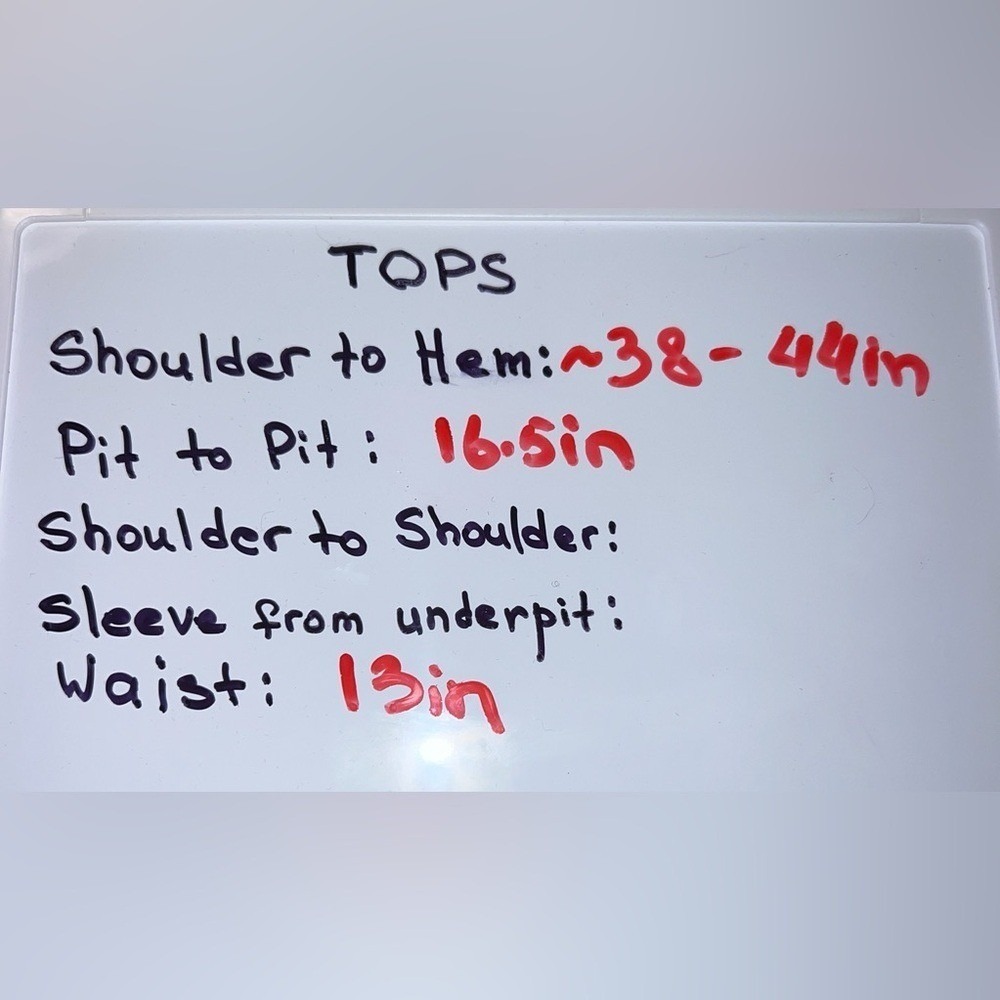 TOPS
Shoulder to Hem: ~38 - 44in
Pit to Pit: 16.5in
Shoulder to Shoulder:
Sleeve from underpit:
Waist: 13in